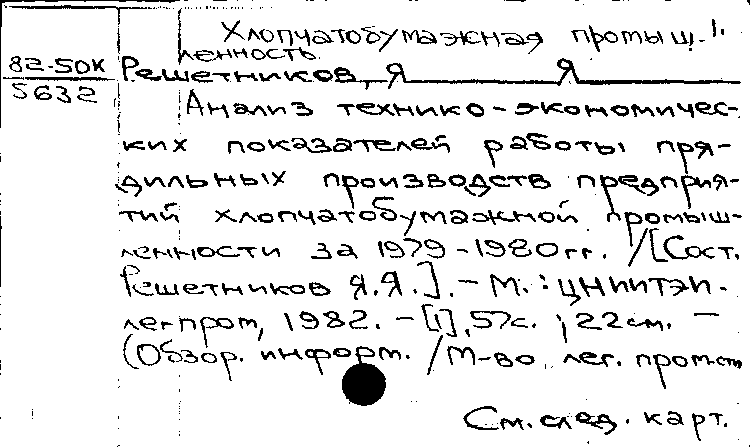 Хлопчатобумажная промыш-1.
ленность
82-50К
5632
Решетников, Я Я
Анализ технико-экономичес-
ких показателей работы пря-
дильных производств предприя-
тий хлопчатобумажной промыш-
ленности за 1979-1980гг. /[Сост.
Решетников Я.Я.].-М.: ЦНИИТЭИ-
легпром, 1982. -[1], 57с. ; 22см. -
(Обзор. информ. /М-во лег. пром-сти
См. след. карт.